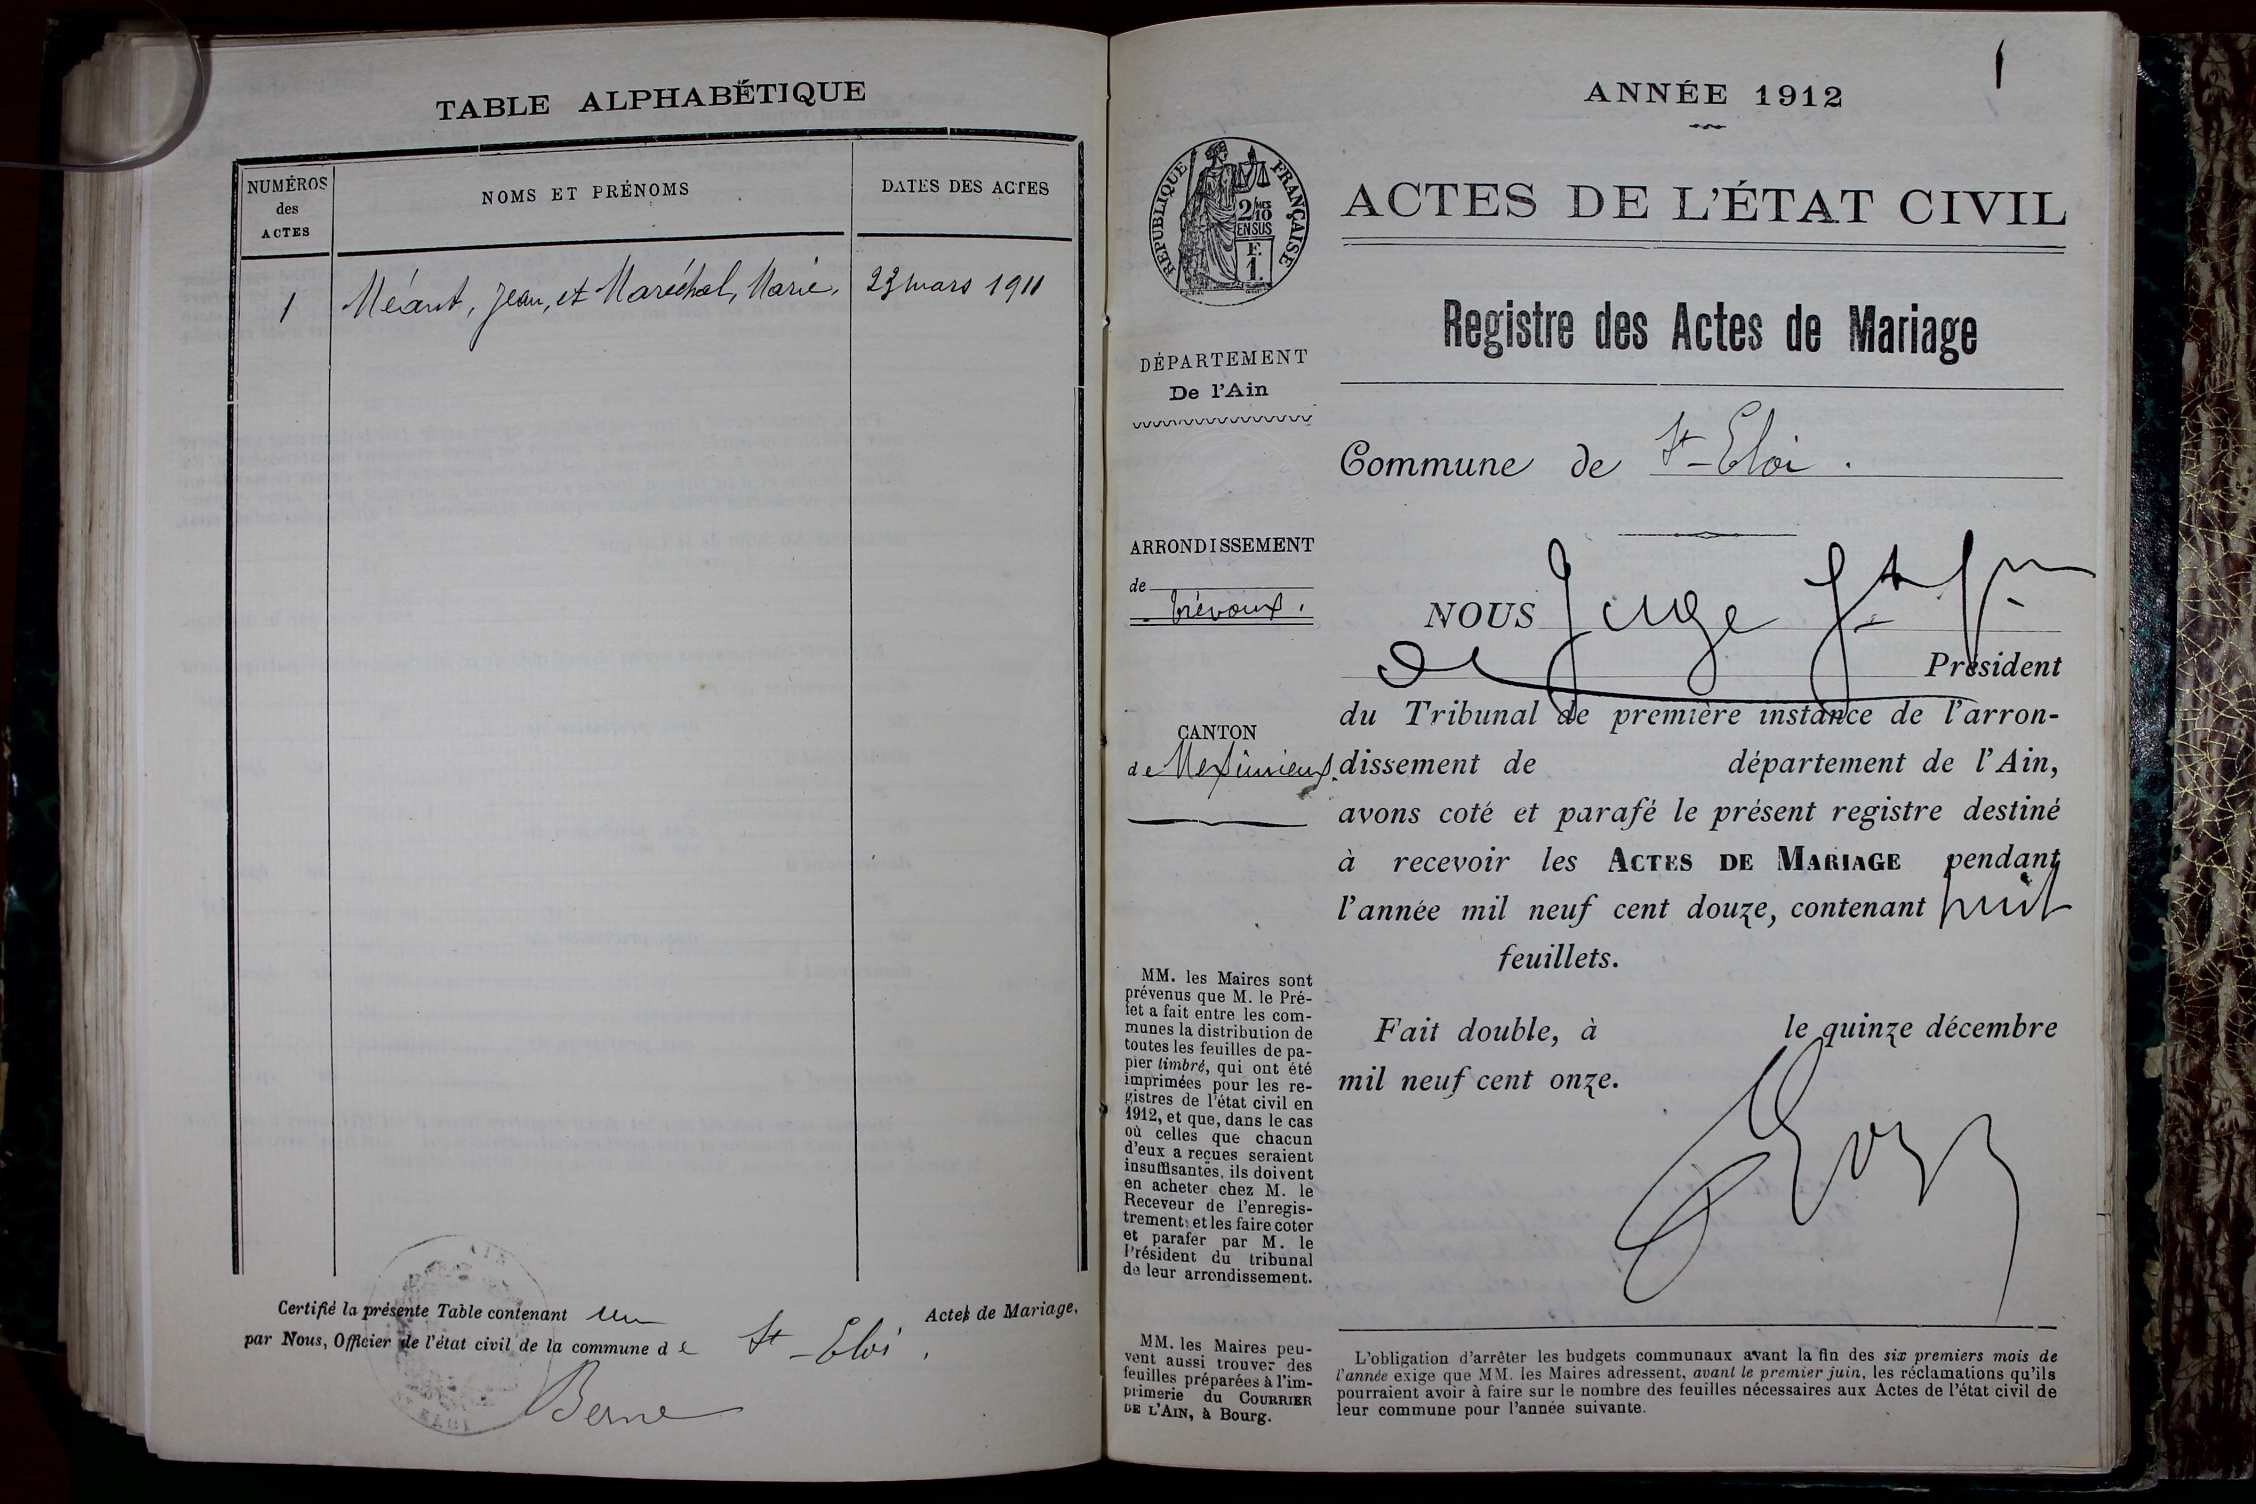 TABLE ALPHABÉTIQUE
NUMÉROS
des
ACTES
NOMS ET PRÉNOMS
DATES DES ACTES
1
Méant, Jean, et Maréchal, Marie.
23 mars 1911
Certifié la présente Table contenant un Actes de Mariage,
par Nous, Officier de l'état civil de la commune de St-Eloi,
Berne
1
ANNÉE 1912
RÉPUBLIQUE FRANÇAISE
2/10MES
EN SUS
F.
1.
ACTES DE L'ÉTAT CIVIL
Registre des Actes de Mariage
DÉPARTEMENT
De l'Ain
ARRONDISSEMENT
de
Trévoux.
CANTON
de Meximieux.
MM. les Maires sont
prévenus que M. le Pré-
fet a fait entre les com-
munes la distribution de
toutes les feuilles de pa-
pier timbré, qui ont été
imprimées pour les re-
gistres de l'état civil en
1912, et que, dans le cas
où celles que chacun
d'eux a reçues seraient
insuffisantes, ils doivent
en acheter chez M. le
Receveur de l'enregis-
trement; et les faire coter
et parafer par M. le
Président du tribunal
de leur arrondissement.
MM. les Maires peu-
vent aussi trouver des
feuilles préparées à l'im-
primerie du COURRIER
DE L'AIN, à Bourg.
Commune de St-Eloi.
NOUS Juge
Président
du Tribunal de première instance de l'arron-
dissement de département de l'Ain,
avons coté et parafé le présent registre destiné
à recevoir les ACTES DE MARIAGE pendant
l'année mil neuf cent douze, contenant huit
feuillets.
Fait double, à le quinze décembre
mil neuf cent onze.
L'obligation d'arrêter les budgets communaux avant la fin des six premiers mois de
l'année exige que MM. les Maires adressent, avant le premier juin, les réclamations qu'ils
pourraient avoir à faire sur le nombre des feuilles nécessaires aux Actes de l'état civil de
leur commune pour l'année suivante.